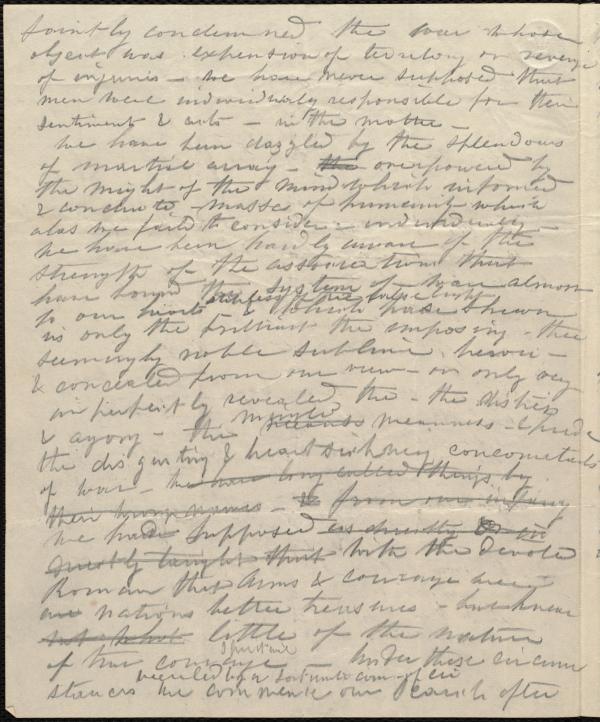 jointly condemned the war whose
object was expension of territory or revenge
of injuries - we have never supposed that
men were individually responsible for their
sentiments & acts - in the matter -
We have been dazzled by the splendours
of martial array - the overpowered by
the might of the mind which informed
& conducted - masses of humanity which
alas we failed to consider individually -
we have been hardly aware of the
strength of the associations that
have bound the system of war almost
to our hearts & which has shewn
us only the brilliant the imposing - the
seemingly noble sublime heroic -
& concealed from our view - or only very
imperfectly revealed the - the distress
& agony - the meanness - & pride
the disgusting & heart sickening concomitants
of war - we have long called things by
their wrong names - from our infancy
we have supposed
taught that with the devoted
Roman that Arms & courage are
nations better treasures - but knew
not what little of the nature
of true courage - Under these circum
stances we commence our search after